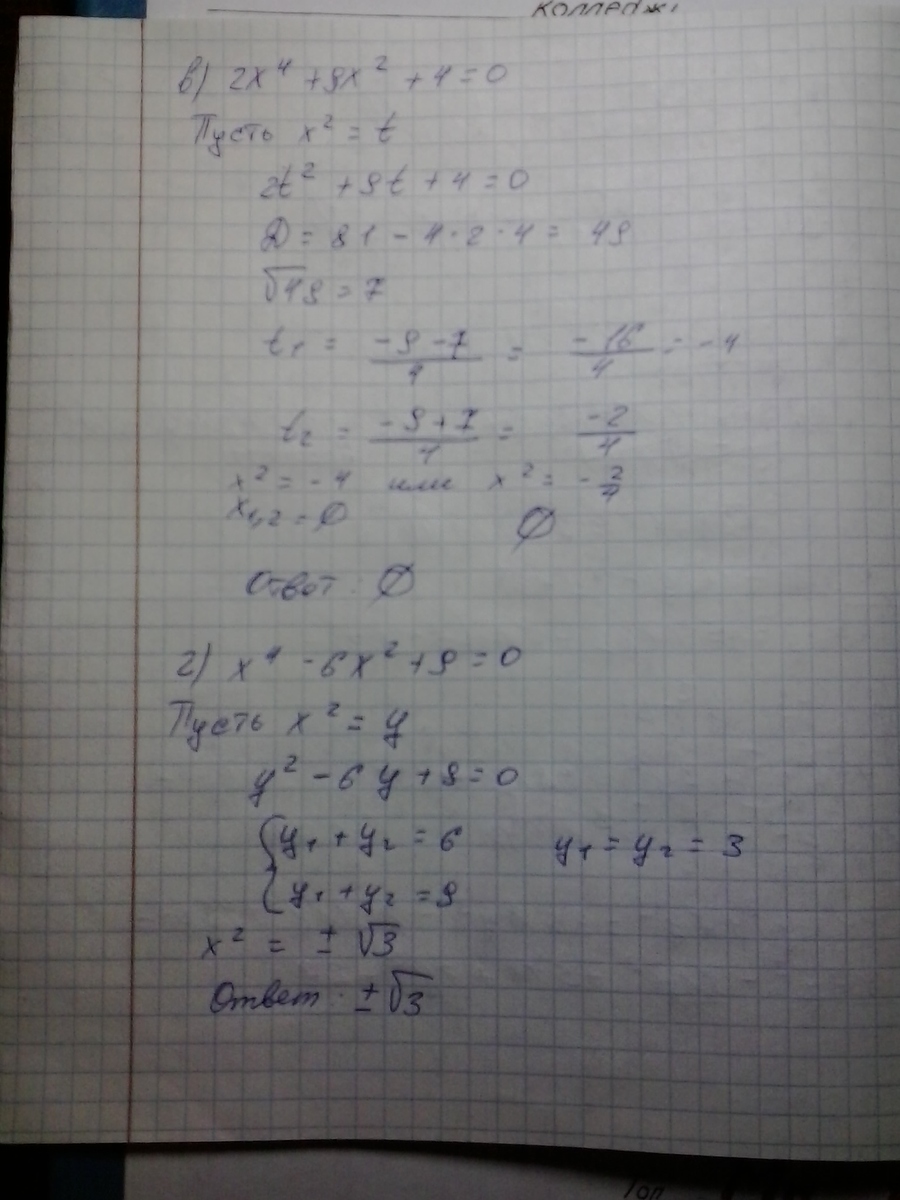 колледж
в) 2x⁴ + 9x² + 4 = 0
Пусть x² = t
2t² + 9t + 4 = 0
D = 81 - 4·2·4 = 49
√49 = 7
t₁ = (-9-7)/4 = -16/4 = -4
t₂ = (-9+7)/4 = -2/4
x² = -4 или x² = -2/4
x₁,₂ = ∅ ∅
Ответ: ∅
г) x⁴ - 6x² + 9 = 0
Пусть x² = y
y² - 6y + 9 = 0
{ y₁ + y₂ = 6 y₁ = y₂ = 3
{ y₁ + y₂ = 9
x² = ± √3
Ответ: ±√3